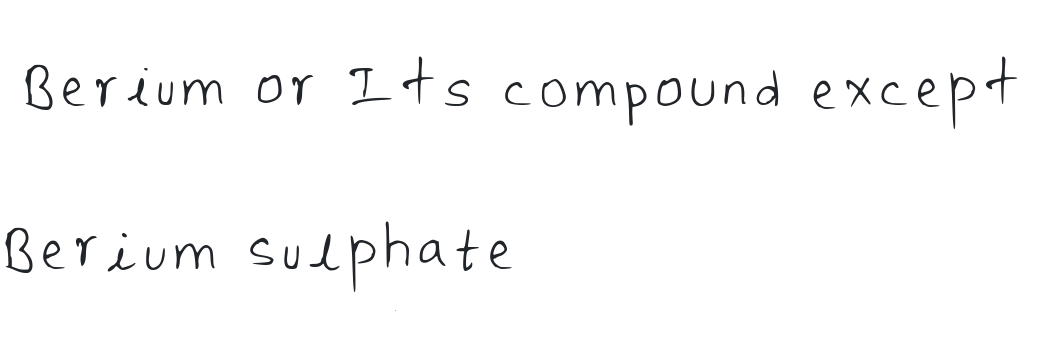 Berium or Its compound except
Berium sulphate